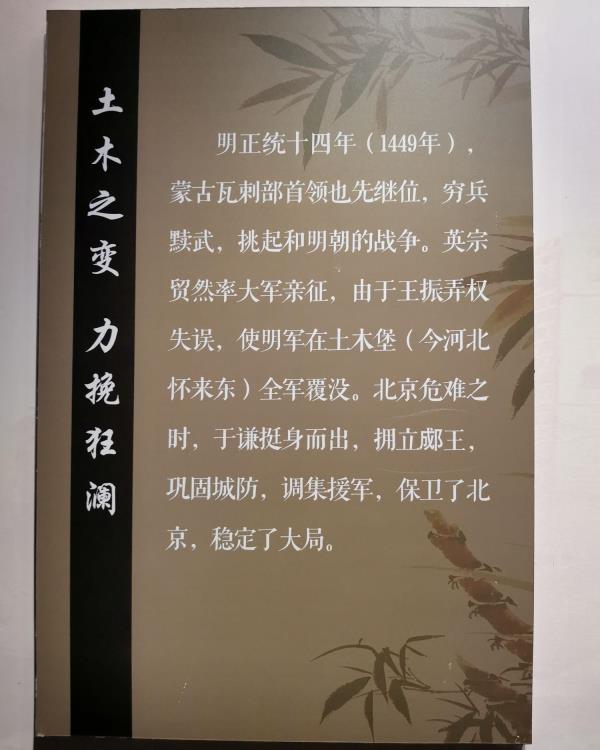 土木之变 力挽狂澜
明正统十四年（1449年），
蒙古瓦刺部首领也先继位，穷兵
黩武，挑起和明朝的战争。英宗
贸然率大军亲征，由于王振弄权
失误，使明军在土木堡（今河北
怀来东）全军覆没。北京危难之
时，于谦挺身而出，拥立郕王，
巩固城防，调集援军，保卫了北
京，稳定了大局。